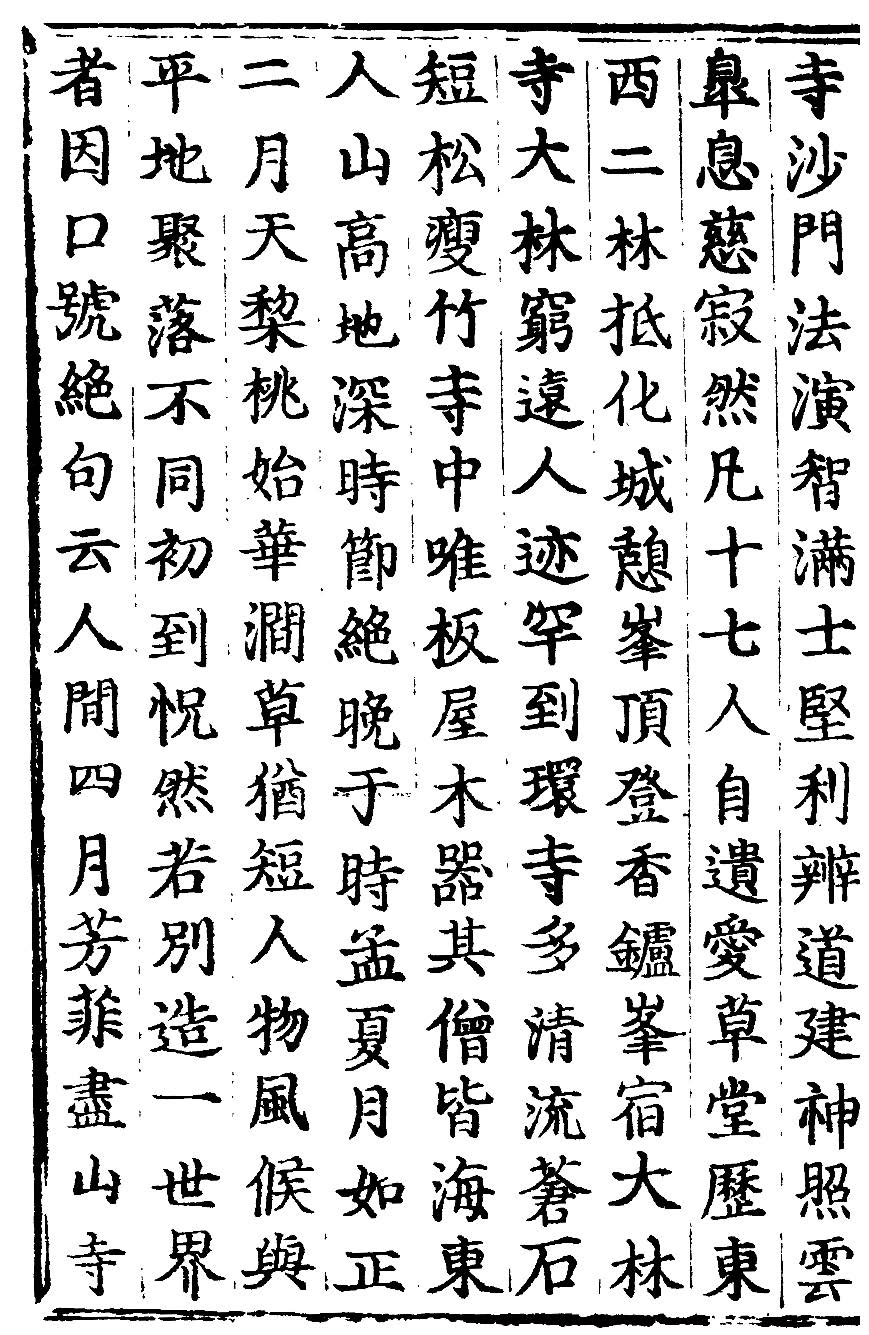 寺沙門法演智滿士堅利辨道建神照雲
臯息慈寂然凡十七人自遺愛草堂歷東
西二林抵化城憩峯頂登香鑪峯宿大林
寺大林窮遠人迹罕到環寺多清流蒼石
短松瘦竹寺中唯板屋木器其僧皆海東
人山高地深時節絕晚于時孟夏月如正
二月天梨桃始華澗草猶短人物風候與
平地聚落不同初到怳然若別造一世界
者因口號絕句云人間四月芳菲盡山寺